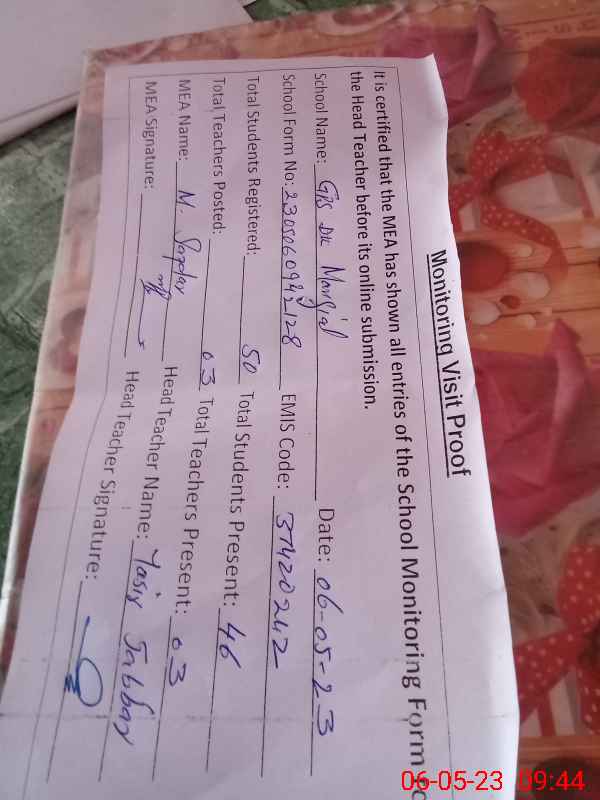 Monitoring Visit Proof
It is certified that the MEA has shown all entries of the School Monitoring Form
the Head Teacher before its online submission.
School Name: GPS Dk Mangial Date: 06-05-23
School Form No: EMIS Code: 37420242
Total Students Registered: 50 Total Students Present: 46
Total Teachers Posted: 03 Total Teachers Present: 03
MEA Name: M. Head Teacher Name: Yasir Jabbar
MEA Signature: Head Teacher Signature:
06-05-23 09:44